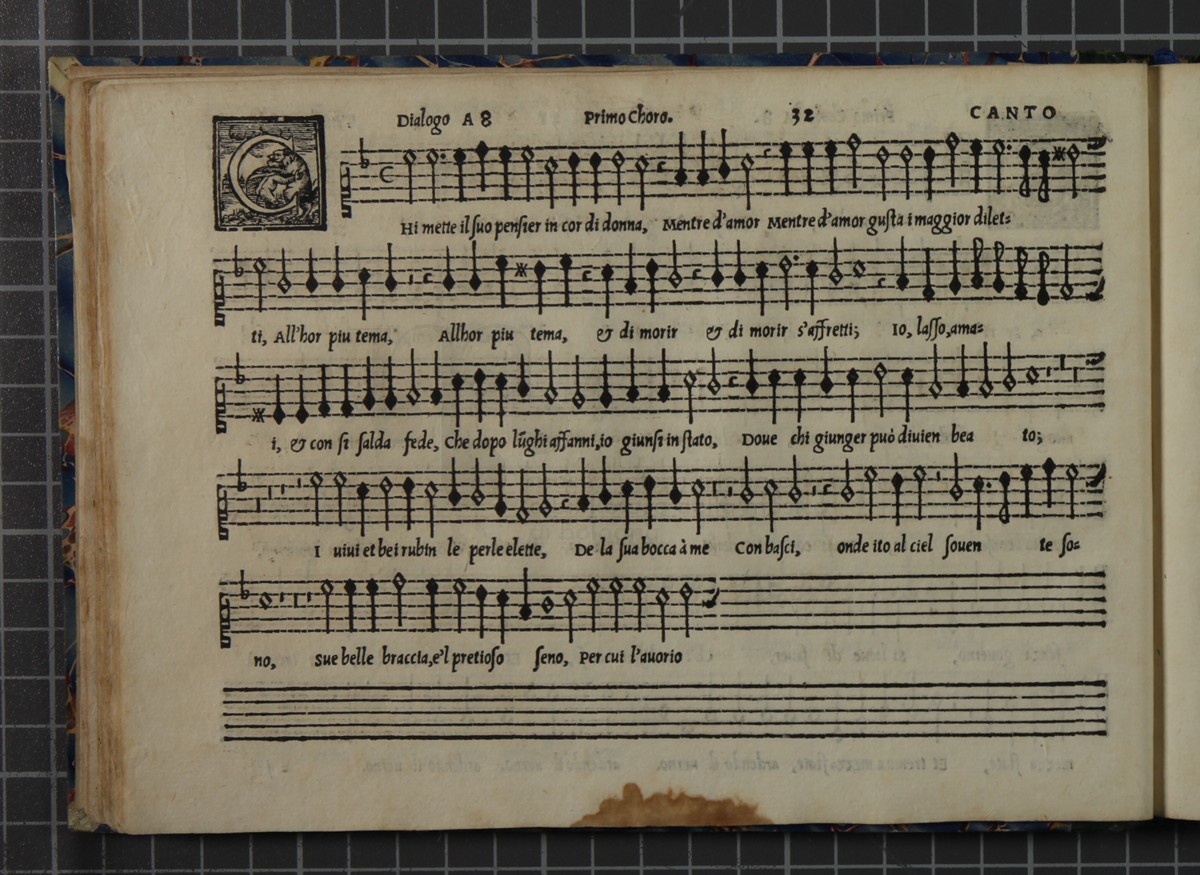 Dialogo A 8 Primo Choro. 32 CANTO
CHi mette il suo pensier in cor di donna, Mentre d'amor Mentre d'amor gusta i maggior dilet=
ti, All'hor piu tema, Allhor piu tema, & di morir & di morir s'affretti; Io, lasso, ama=
i, & con si salda fede, Che dopo lũghi affanni, io giunsi in stato, Doue chi giunger può diuien bea to;
I uiui et bei rubin le perle elette, De la sua bocca à me Con basci, onde ito al ciel souen te so=
no, Sue belle braccia, e'l pretioso seno, Per cui l'auorio